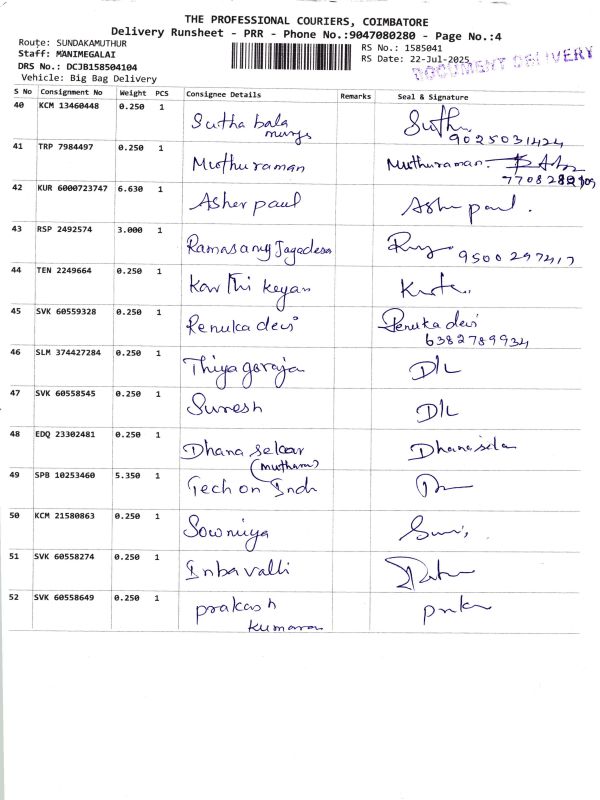 THE PROFESSIONAL COURIERS, COIMBATORE
Delivery Runsheet - PRR - Phone No.:9047080280 - Page No.:4
Route: SUNDAKAMUTHUR
RS No.: 1585041
Staff: MANIMEGALAI
RS Date: 22-Jul-2025
DOCUMENT DELIVERY
DRS No.: DCJB158504104
Vehicle: Big Bag Delivery
S No Consignment No Weight PCS Consignee Details Remarks Seal & Signature
40 KCM 13460448 0.250 1 Sutha bala
9025031424
41 TRP 7984497 0.250 1 Muthuraman Muthuraman.
42 KUR 6000723747 6.630 1 Asher paul Ashe paul.
43 RSP 2492574 3.000 1 Ramasamy Jagadesa
9500297417
44 TEN 2249664 0.250 1 Karthi keyan
45 SVK 60559328 0.250 1 Renuka devi Renuka devi
6382789934
46 SLM 374427284 0.250 1 Thiyagoraja D/L
47 SVK 60558545 0.250 1 Suresh D/L
48 EDQ 23302481 0.250 1 Dhana sekar Dhanasela
49 SPB 10253460 5.350 1 Tech on Indi
50 KCM 21580863 0.250 1 Sowmiya
51 SVK 60558274 0.250 1 Inbavalli
52 SVK 60558649 0.250 1 prakash
kumaran